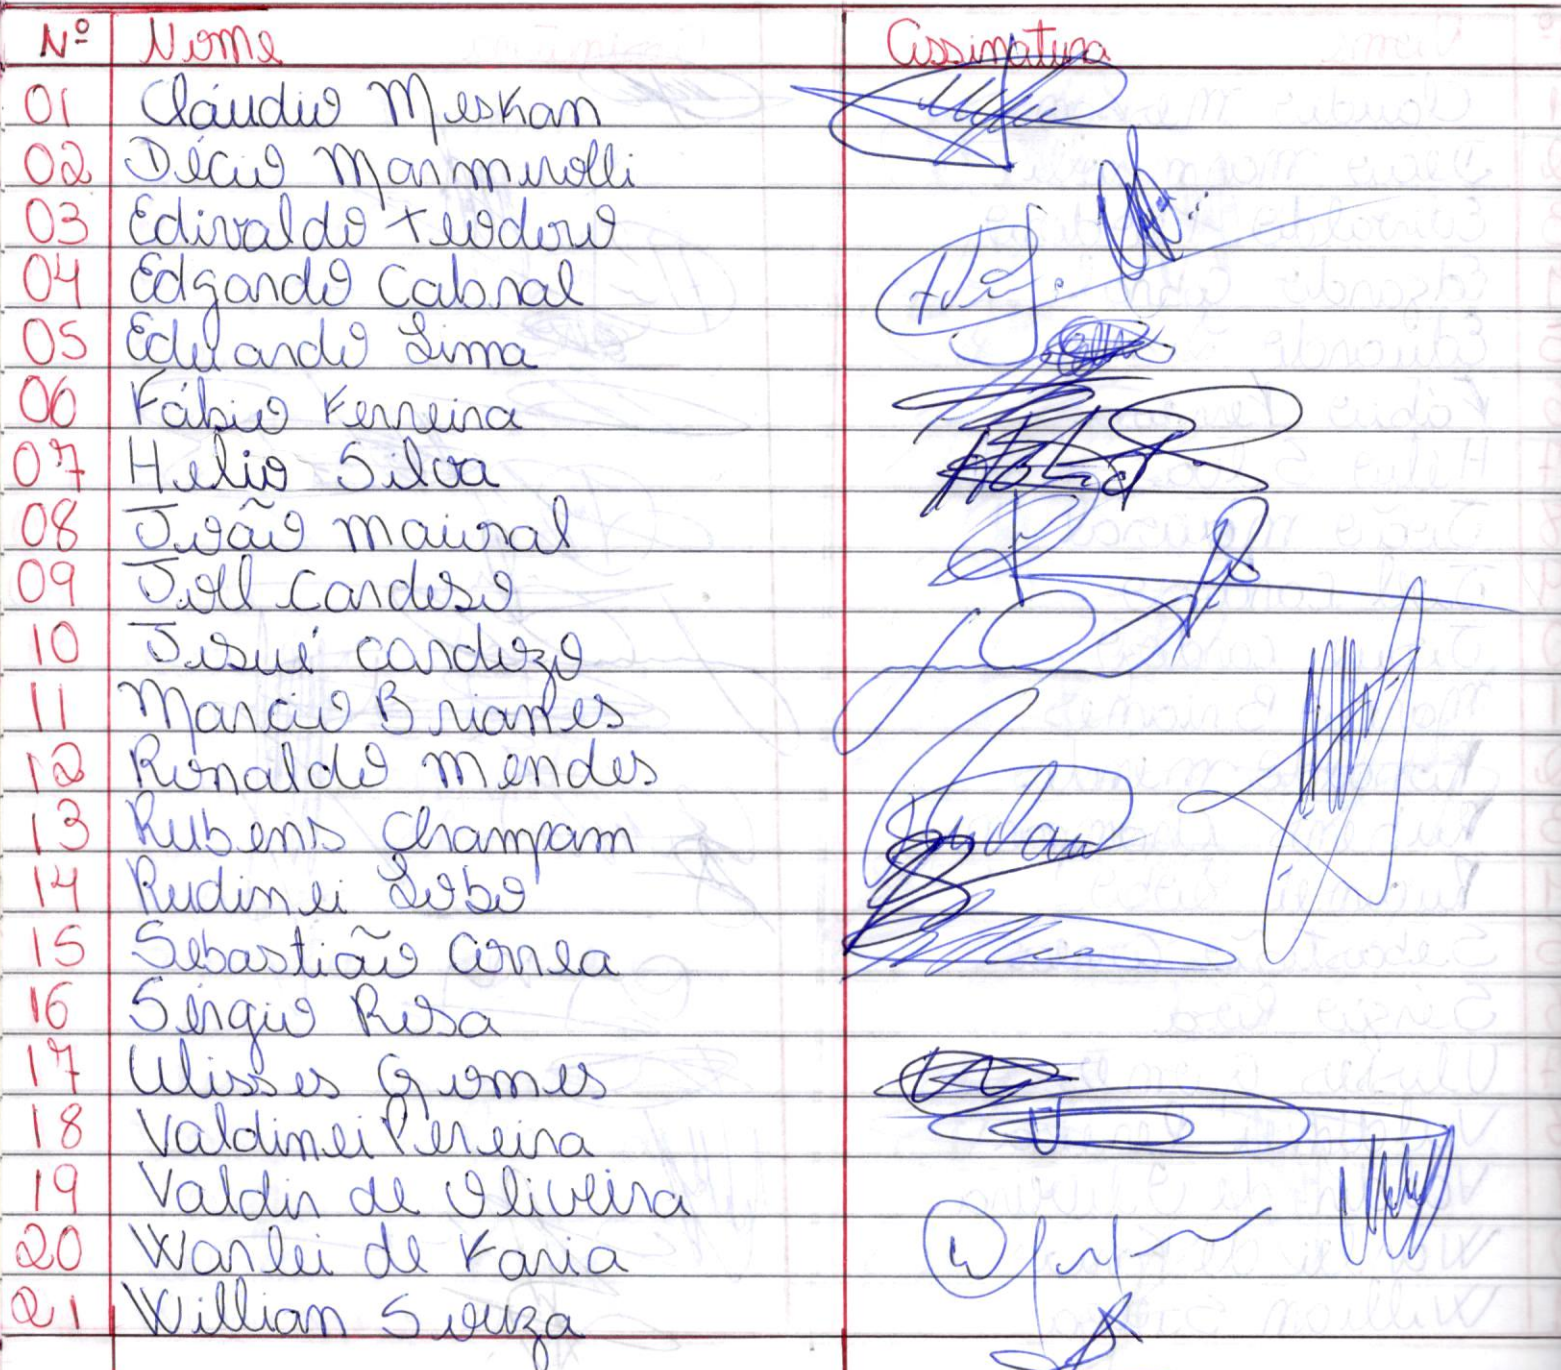 Nº Nome Assinatura
01 Cláudio Meskan
02 Décio Marmirolli
03 Edivaldo Teodoro
04 Edgardo Cabral
05 Eduardo Lima
06 Fábio Ferreira
07 Helio Silva
08 João Maioral
09 Joel Cardoso
10 Josué Cardozo
11 Marcio Briames
12 Ronaldo Mendes
13 Rubens Champam
14 Rudinei Lobo
15 Sebastião Correa
16 Sérgio Rosa
17 Ulisses Gomes
18 Valdinei Pereira
19 Valdir de Oliveira
20 Warlei de Faria
21 Willian Souza